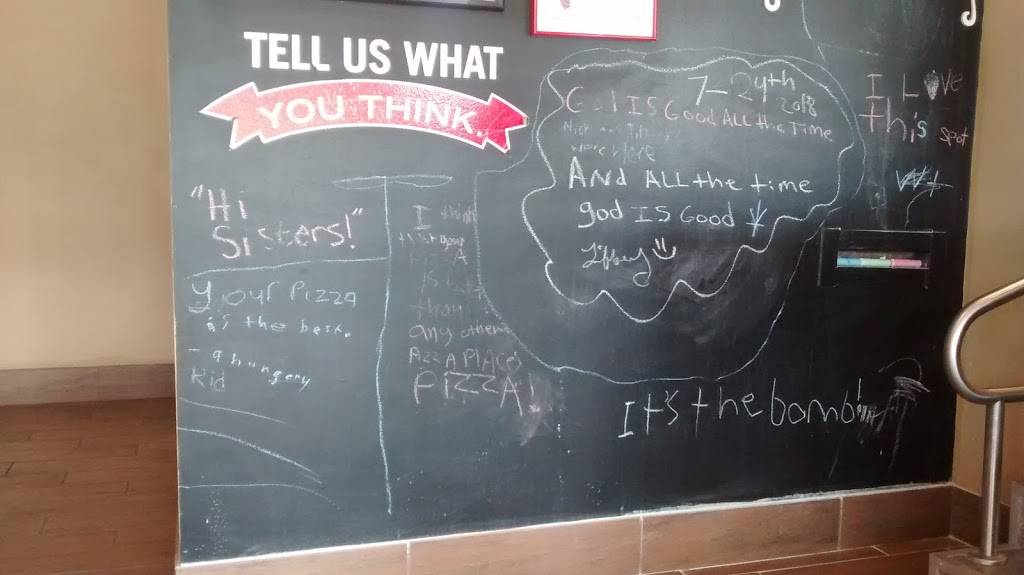 TELL US WHAT
YOU THINK.
"Hi
Sisters!"
your Pizza
is the best.
- a hungery
Kid
I think
that your
is
than
any other
PLACES
PIZZA
7-24th
2018
God IS Good ALL the Time
were Here
And ALL the time
god IS Good
It's the bomb!
I Love
This spot